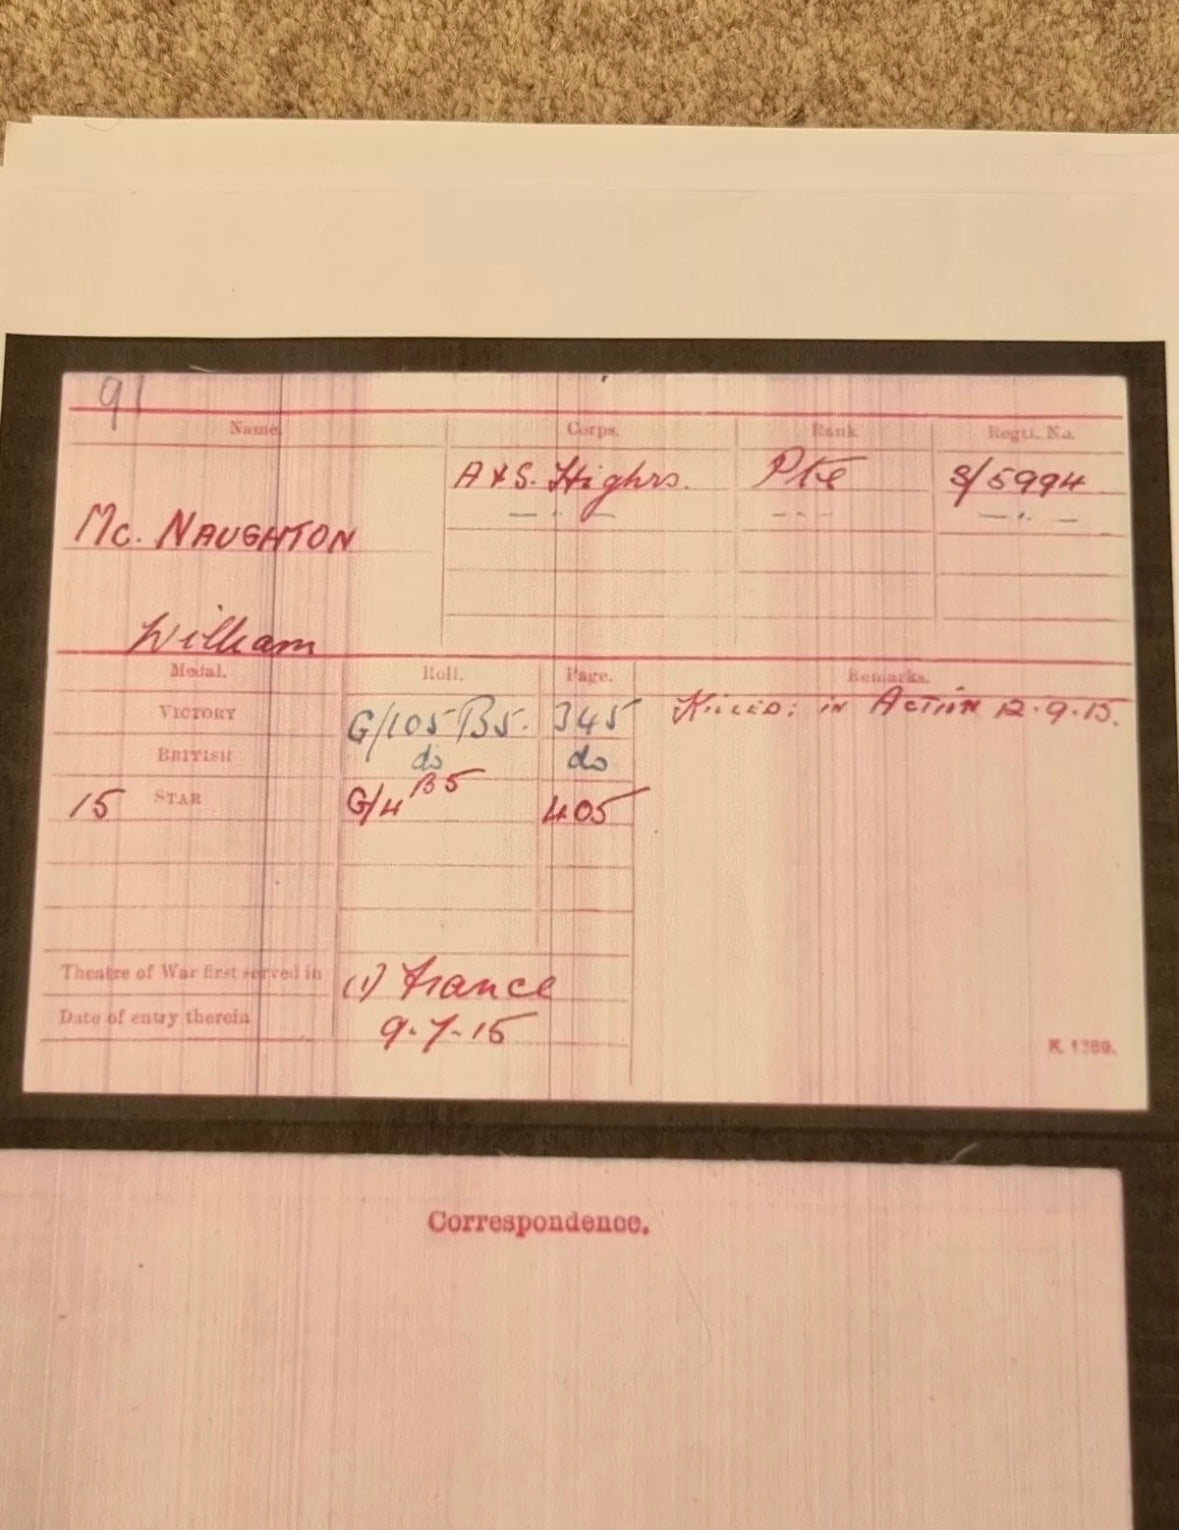 91
Name. Corps. Rank Regtl. No.
A & S. Highrs. Pte S/5994
— . — - - - — . —
Mc. NAUGHTON
William
Medal. Roll. Page. Remarks.
VICTORY G/105 B5. 345 KILLED: in ACTION 12.9.15.
BRITISH do do
15 STAR G/4 B5 405
Theatre of War first served in (1) France
Date of entry therein 9.7.15
K. 1380.
Correspondence.